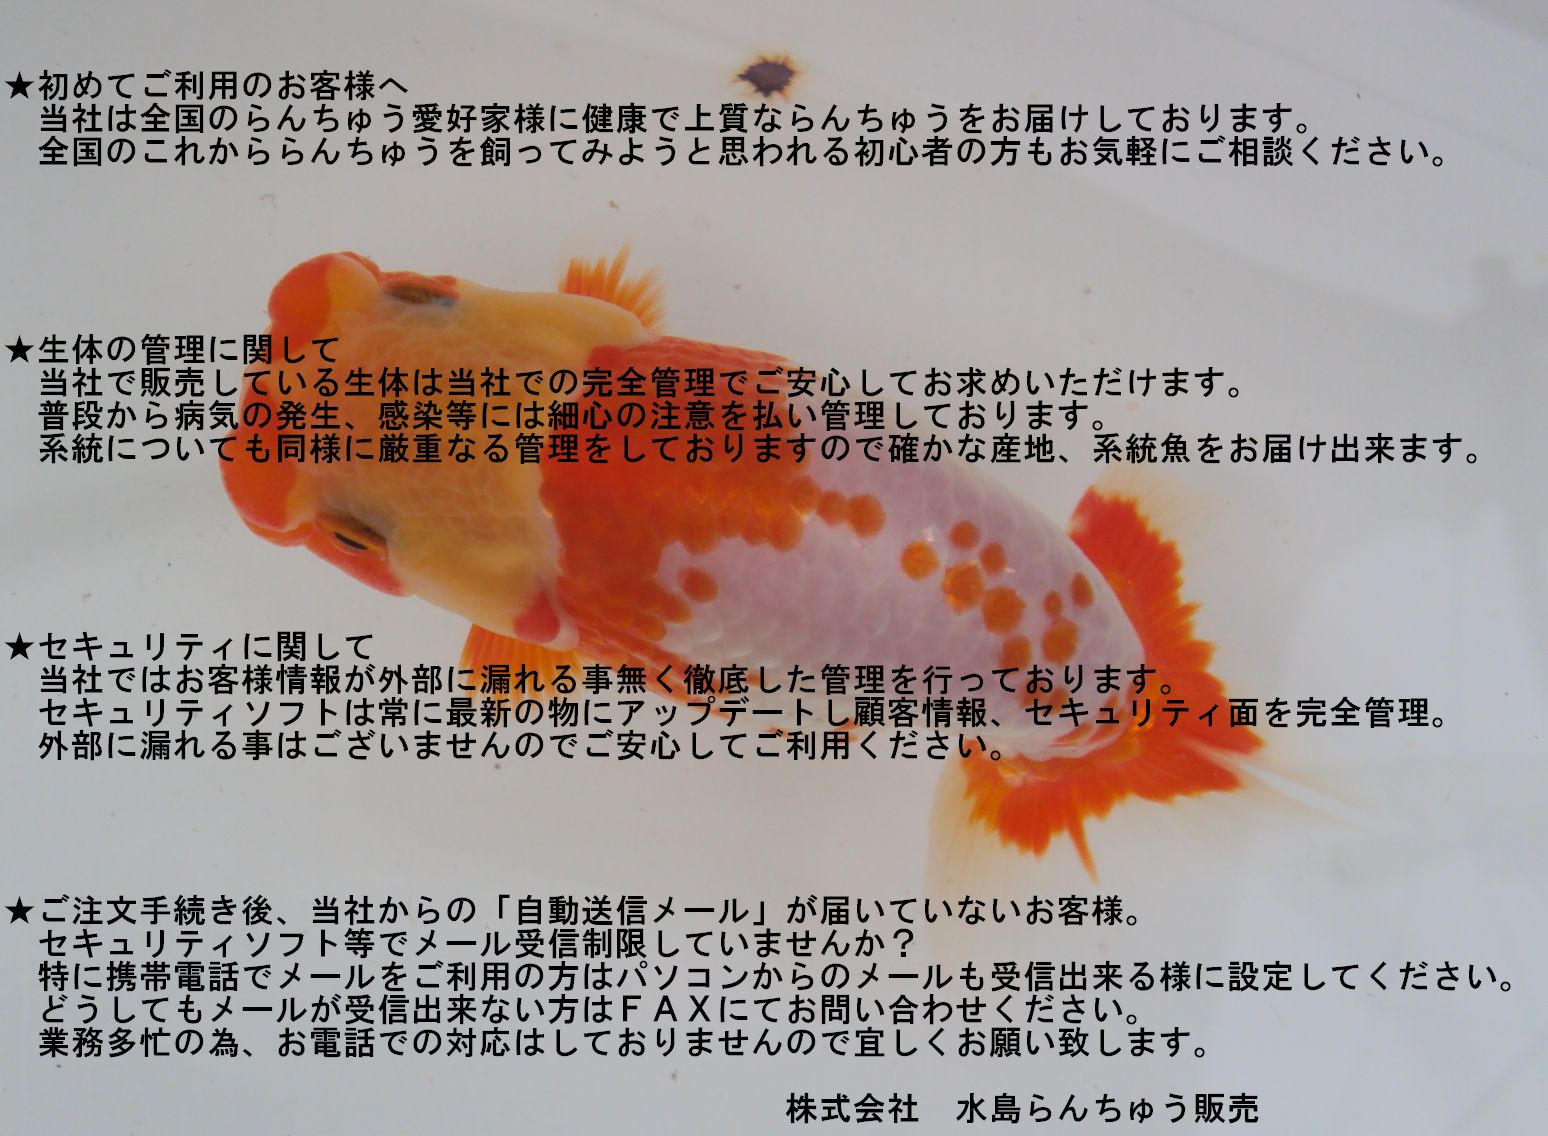 ★初めてご利用のお客様へ
当社は全国のらんちゅう愛好家様に健康で上質ならんちゅうをお届けしております。
全国のこれかららんちゅうを飼ってみようと思われる初心者の方もお気軽にご相談ください。
★生体の管理に関して
当社で販売している生体は当社での完全管理でご安心してお求めいただけます。
普段から病気の発生、感染等には細心の注意を払い管理しております。
系統についても同様に厳重なる管理をしておりますので確かな産地、系統魚をお届け出来ます。
★セキュリティに関して
当社ではお客様情報が外部に漏れる事無く徹底した管理を行っております。
セキュリティソフトは常に最新の物にアップデートし顧客情報、セキュリティ面を完全管理。
外部に漏れる事はございませんのでご安心してご利用ください。
★ご注文手続き後、当社からの「自動送信メール」が届いていないお客様。
セキュリティソフト等でメール受信制限していませんか？
特に携帯電話でメールをご利用の方はパソコンからのメールも受信出来る様に設定してください。
どうしてもメールが受信出来ない方はＦＡＸにてお問い合わせください。
業務多忙の為、お電話での対応はしておりませんので宜しくお願い致します。
株式会社　水島らんちゅう販売